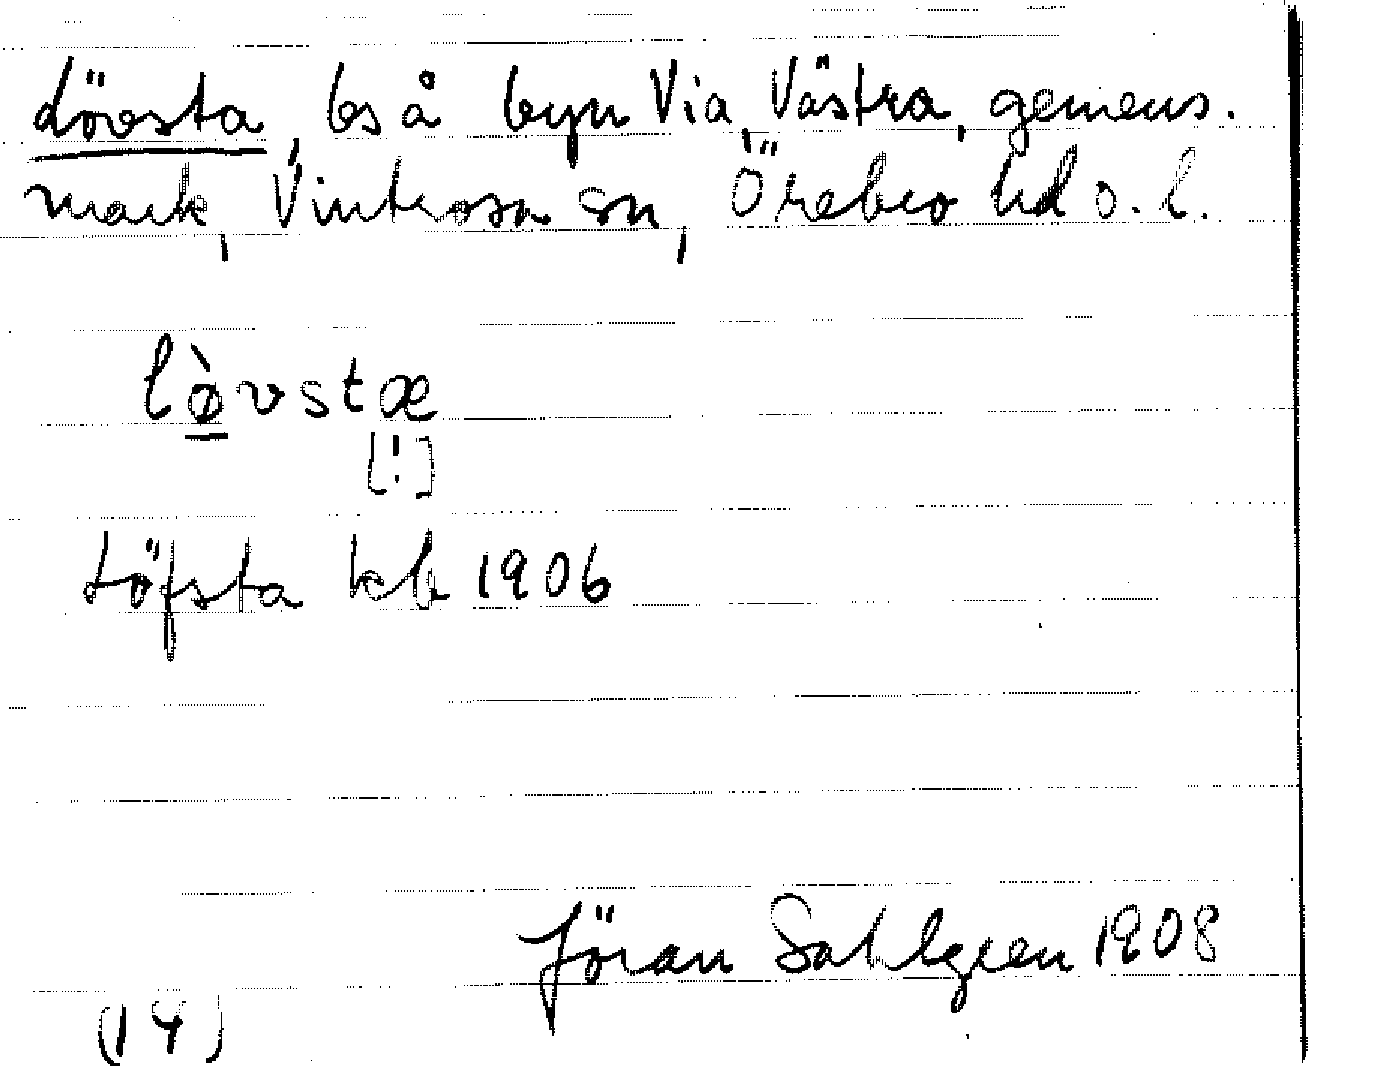 Lövsta, bs å byn Via, Västra, gemens.
mark, Vintrosa sn, Örebro hd ö. l.
lø̀vstæ
[!]
Löfsta kb 1906
Jöran Sahlgren 1908
(14)